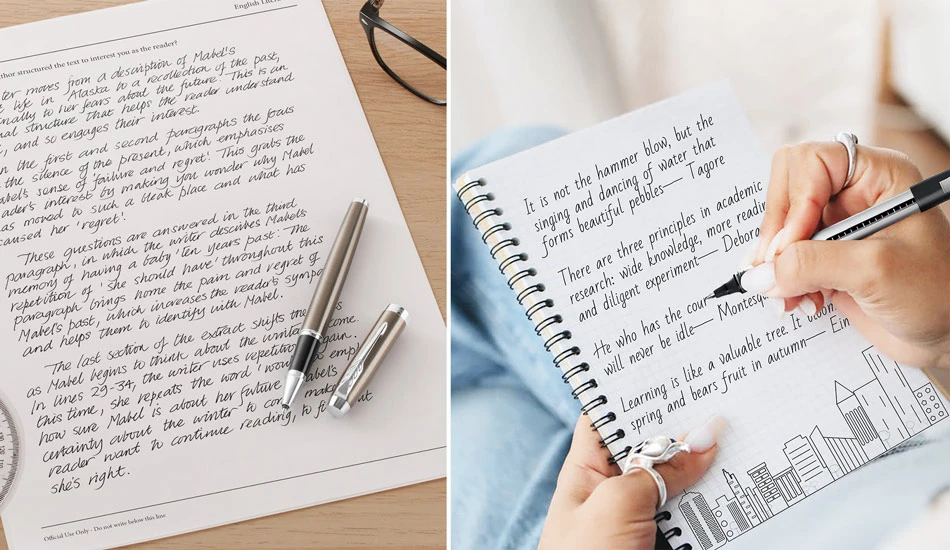 English
thor structured the text to interest you as the reader?
ter moves from a description of Mabel's
life in Alaska to a recollection of the past,
nally to her fears about the future. This is an
al structure that helps the reader understand
, and so engages their interest.
n the first and second paragraphs the focus
the silence of the present, which emphasises
abel's sense of 'failure and regret'. This grabs the
ader's interest by making you wonder why Mabel
as moved to such a bleak place and what has
caused her 'regret'.
These questions are answered in the third
paragraph, in which the writer describes Mabel's
memory of having a baby 'ten years past'. The
repetition of 'she should have' throughout this
paragraph brings home the pain and regret of
Mabel's past, which increases the reader's sympa
and helps them to identify with Mabel.
The last section of the extract shifts the
as Mabel begins to think about the winter come.
In lines 29-34, the writer uses repetition again.
this time, she repeats the word 'would' to emp
how sure Mabel is about her future. Mabel's
certainty about the winter to come make
reader want to continue reading, to f out
she's right.
Official Use Only - Do not write below this line
It is not the hammer blow, but the
singing and dancing of water that
forms beautiful pebbles— Tagore
There are three principles in academic
research: wide knowledge, more readin
and diligent experiment— Debora
He who has the cour
will never be idle— Montesq
Learning is like a valuable tree. It
spring and bears fruit in autumn— Ein